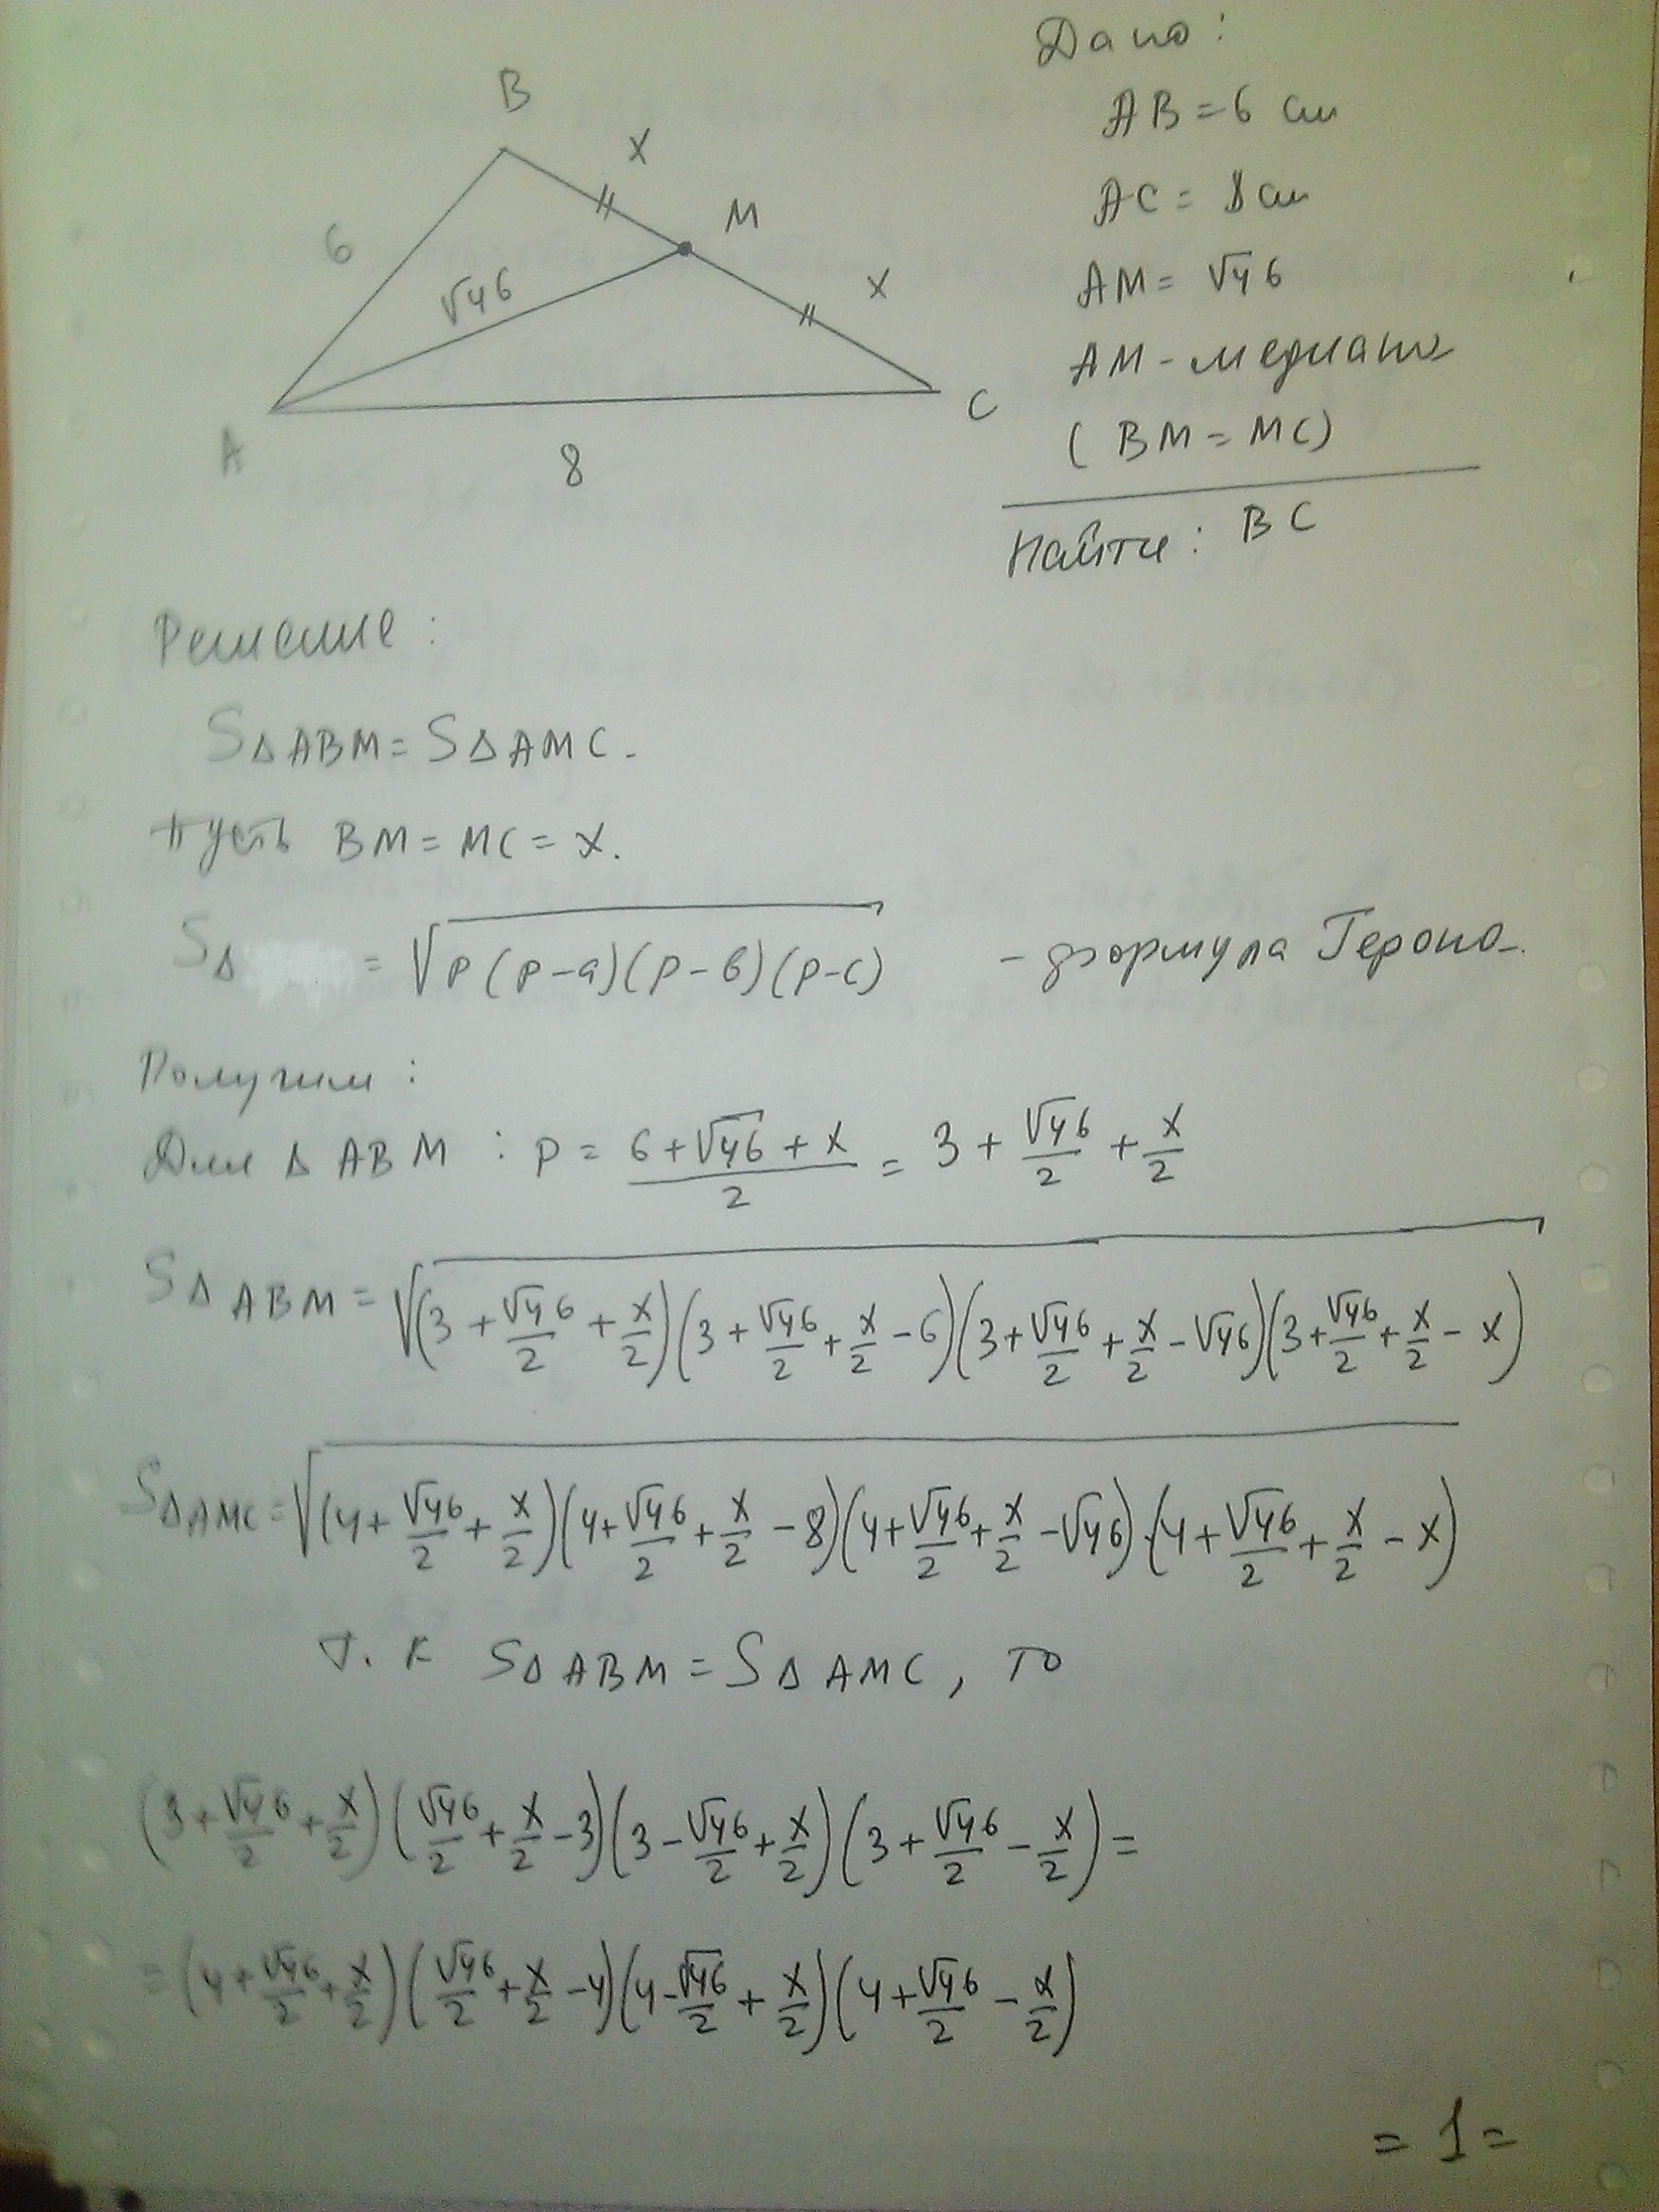 B
x
M
6
√46
x
A
8
C
Дано:
AB = 6 см
AC = 8 см
AM = √46
AM - медиана
( BM = MC)
Найти: BC
Решение:
S△ABM = S△AMC.
Пусть BM = MC = x.
S△ = √p(p-a)(p-b)(p-c) - формула Герона.
Получим:
Для △ABM: p = (6+√46+x)/2 = 3 + √46/2 + x/2
S△ABM = √(3+√46/2+x/2)(3+√46/2+x/2-6)(3+√46/2+x/2-√46)(3+√46/2+x/2-x)
S△AMC = √(4+√46/2+x/2)(4+√46/2+x/2-8)(4+√46/2+x/2-√46)·(4+√46/2+x/2-x)
Т. к S△ABM = S△AMC, то
(3+√46/2+x/2)(√46/2+x/2-3)(3-√46/2+x/2)(3+√46/2-x/2)=
=(4+√46/2+x/2)(√46/2+x/2-4)(4-√46/2+x/2)(4+√46/2-x/2)
= 1 =